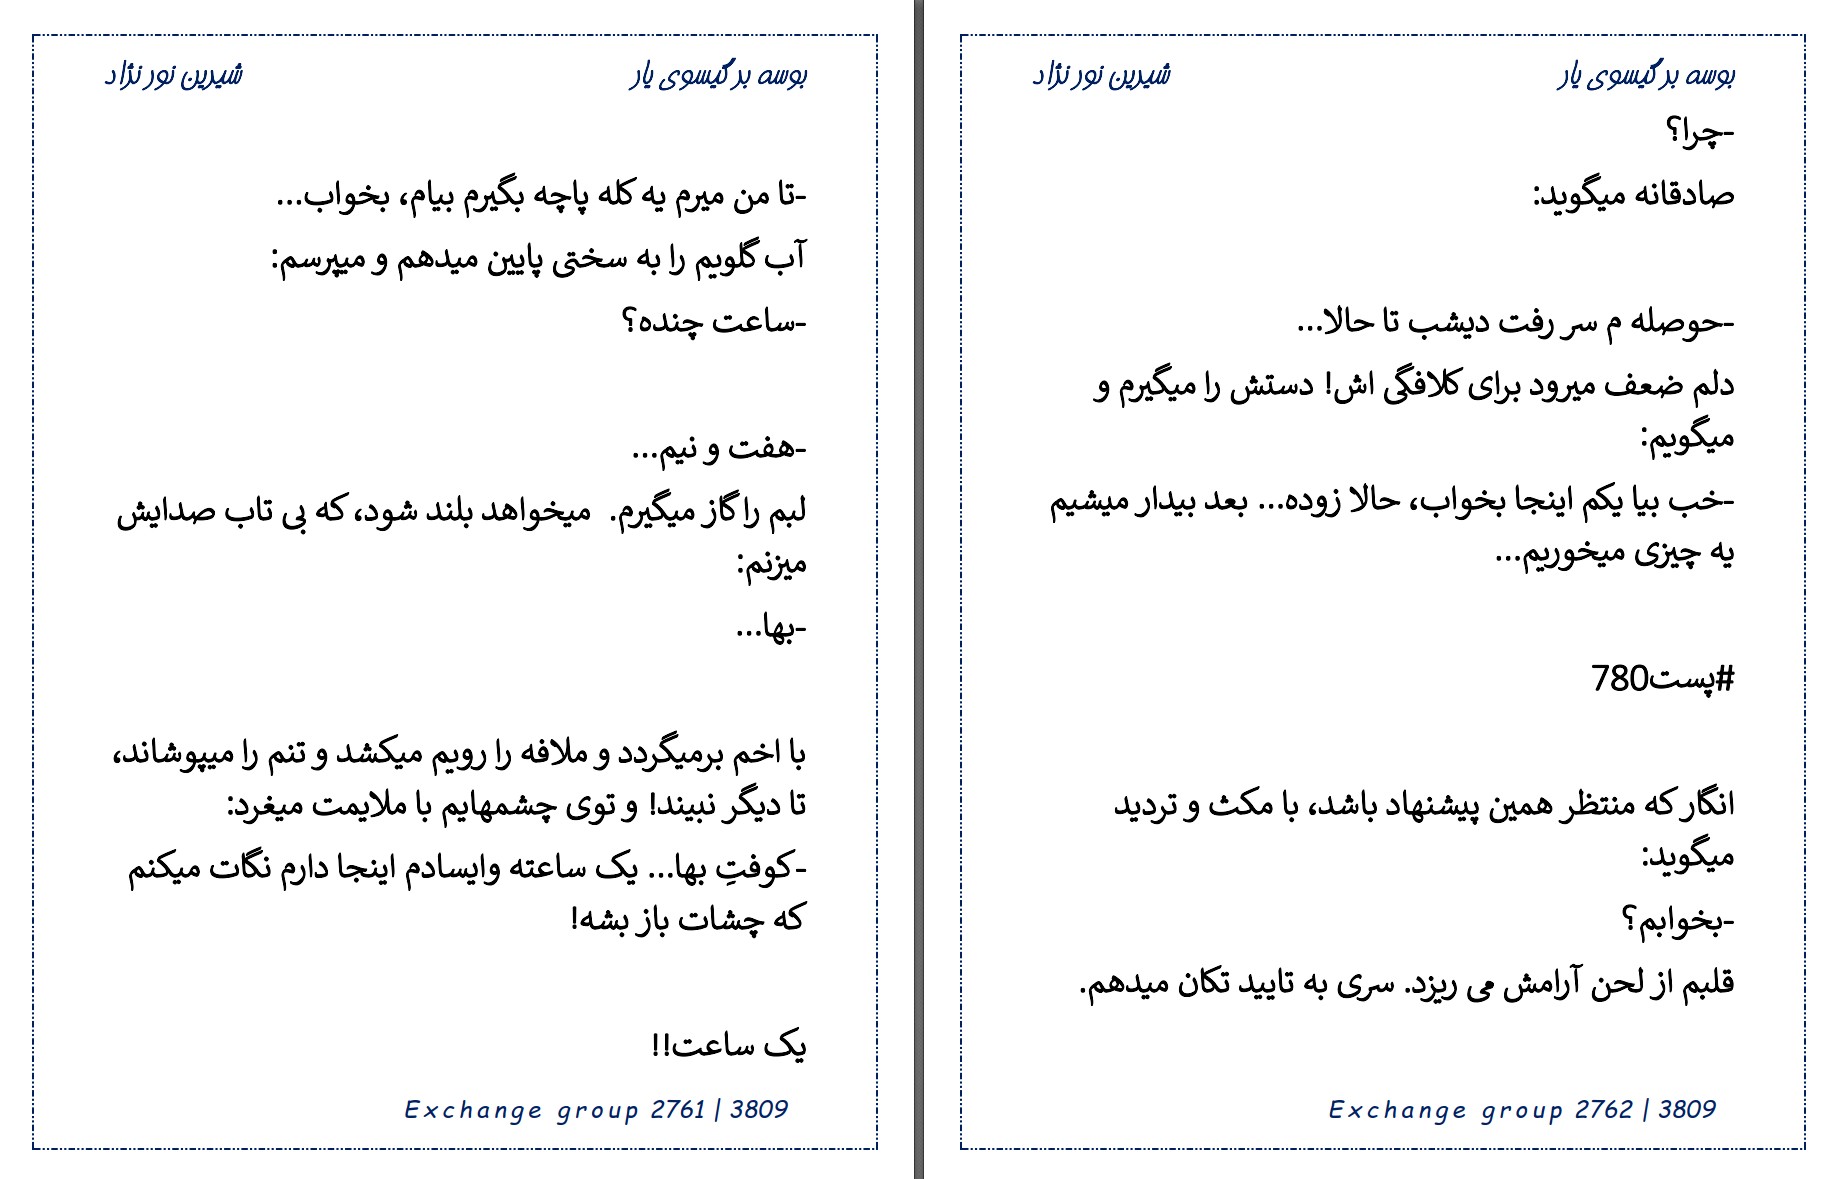 بوسه بر گیسوی یار
شیرین نور نژاد
-تا من میرم یه کله پاچه بگیرم بیام، بخواب...
آب گلویم را به سختی پایین میدهم و میپرسم:
-ساعت چنده؟
-هفت و نیم...
لبم را گاز میگیرم.  میخواهد بلند شود، که بی تاب صدایش
میزنم:
-بها...
با اخم برمیگردد و ملافه را رویم میکشد و تنم را میپوشاند،
تا دیگر نبیند! و توی چشمهایم با ملایمت میغرد:
-کوفتِ بها... یک ساعته وایسادم اینجا دارم نگات میکنم
که چشات باز بشه!
یک ساعت!!
Exchange group 2761 | 3809
بوسه بر گیسوی یار
شیرین نور نژاد
-چرا؟
صادقانه میگوید:
-حوصله م سر رفت دیشب تا حالا...
دلم ضعف میرود برای کلافگی اش! دستش را میگیرم و
میگویم:
-خب بیا یکم اینجا بخواب، حالا زوده... بعد بیدار میشیم
یه چیزی میخوریم...
#پست780
انگار که منتظر همین پیشنهاد باشد، با مکث و تردید
میگوید:
-بخوابم؟
قلبم از لحن آرامش می ریزد. سری به تایید تکان میدهم.
Exchange group 2762 | 3809